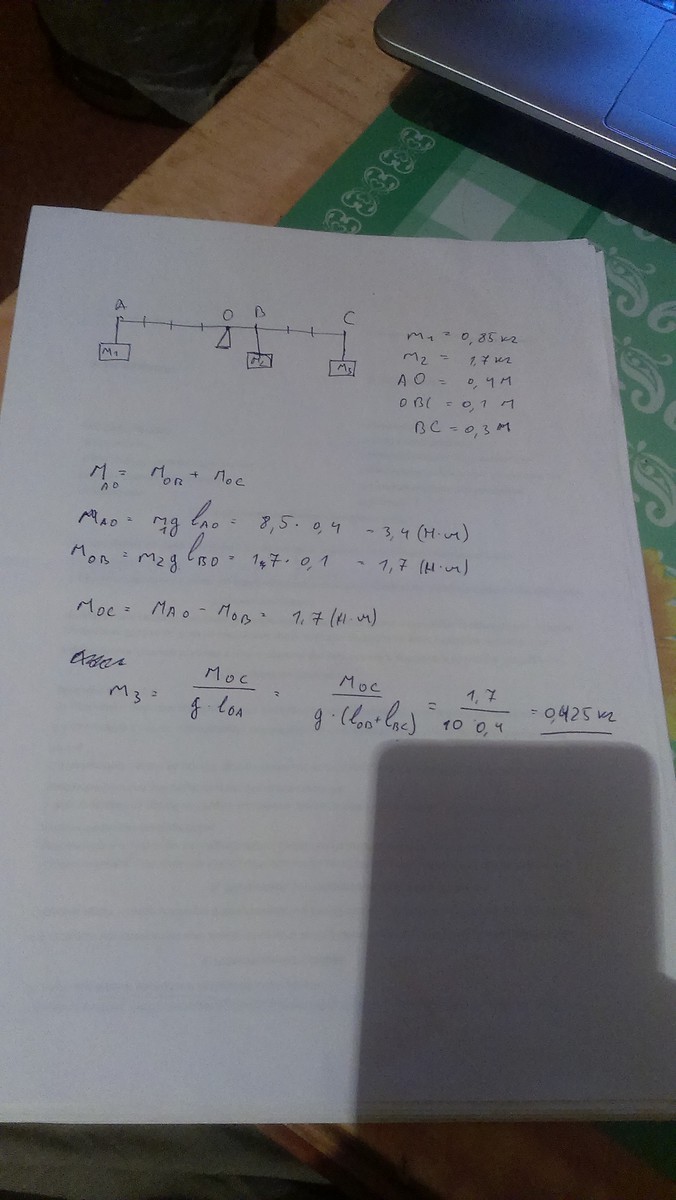 A O B C
M₁ M₂ M₃
m₁ = 0,85 кг
m₂ = 1,7 кг
AO = 0,4 м
OB = 0,1 м
BC = 0,3 м
M_AO = M_OB + M_OC
M_AO = m₁g l_AO = 8,5 · 0,4 = 3,4 (Н·м)
M_OB = m₂g l_BO = 1,7 · 0,1 = 1,7 (Н·м)
M_OC = M_AO - M_OB = 1,7 (Н·м)
m₃ = M_OC / g · l_OA = M_OC / g · (l_OB + l_BC) = 1,7 / 10 · 0,4 = 0,425 кг